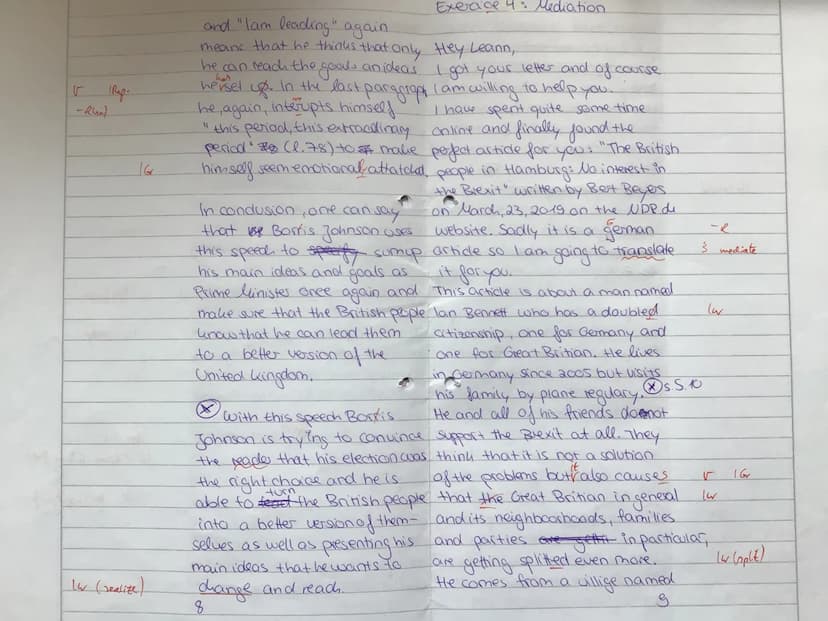 and "I am leading" again
means that he thinks that only
he can reach the goals an ideas
he has set up. In the last paragraph
he, again, interupts himself
"this period, this extraordinary
period" (l.78) to make
himself seem emotional attatched.
In conclusion, one can say
that Borris Johnson uses
this speech to sum up
his main ideas and goals as
Prime Minister once again and
make sure that the British people
know that he can lead them
to a better version of the
United Kingdom.
With this speech Borris
Johnson is trying to convince
the reader that his election was
the right choice and he is
able to turn the British people
into a better version of them-
selves as well as presenting his
main ideas that he wants to
change and reach.
8
V
IRep.
IG
IW (realize)
Exercise 4: Mediation
Hey Leann,
I got your letter and of course
I am willing to help you.
I have spent quite some time
online and finally found the
perfect article for you: "The British
people in Hamburg: No interest in
the Brexit" written by Bert Beyers
on March, 23, 2019 on the NDR.de
website. Sadly it is a german
article so I am going to translate
it for you.
This article is about a man named
Ian Bennett who has a doubled
citizenship, one for Germany and
one for Great Britian. He lives
in Germany since 2005 but visits
his family by plane regulary. s S.10
He and all of his friends do not
support the Brexit at all. They
think that it is not a solution
of the problems but it also causes
that the Great Britian in general
and its neighboorhoods, families
and parties in particular,
are getting splitted even more.
He comes from a villige named
9
-R
mediate
IW
V IG
IW
IW (split)